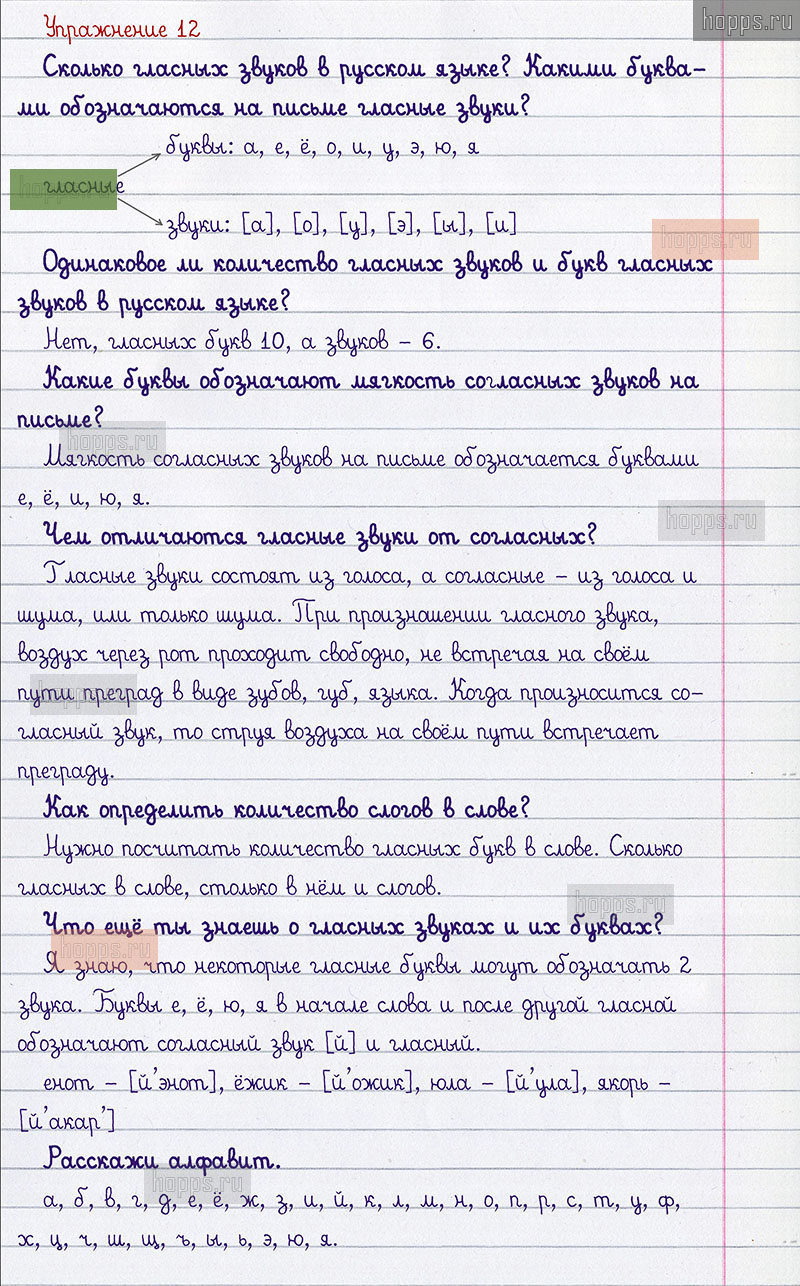 hopps.ru
Упражнение 12
Сколько гласных звуков в русском языке? Какими буква-
ми обозначаются на письме гласные звуки?
буквы: а, е, ё, о, и, у, э, ю, я
гласные
hopps.ru
звуки: [а], [о], [у], [э], [ы], [и]
hopps.ru
Одинаковое ли количество гласных звуков и букв гласных
звуков в русском языке?
Нет, гласных букв 10, а звуков – 6.
Какие буквы обозначают мягкость согласных звуков на
письме?
hopps.ru
Мягкость согласных звуков на письме обозначается буквами
е, ё, и, ю, я.
hopps.ru
Чем отличаются гласные звуки от согласных?
Гласные звуки состоят из голоса, а согласные – из голоса и
шума, или только шума. При произношении гласного звука,
воздух через рот проходит свободно, не встречая на своём
пути преград в виде зубов, губ, языка. Когда произносится со-
hopps.ru
гласный звук, то струя воздуха на своём пути встречает
преграду.
Как определить количество слогов в слове?
Нужно посчитать количество гласных букв в слове. Сколько
гласных в слове, столько в нём и слогов.
hopps.ru
Что ещё ты знаешь о гласных звуках и их буквах?
hopps.ru
Я знаю, что некоторые гласные буквы могут обозначать 2
звука. Буквы е, ё, ю, я в начале слова и после другой гласной
обозначают согласный звук [й] и гласный.
енот – [й'энот], ёжик – [й'ожик], юла – [й'ула], якорь –
[й'акар']
Расскажи алфавит.
hopps.ru
а, б, в, г, д, е, ё, ж, з, и, й, к, л, м, н, о, п, р, с, т, у, ф,
х, ц, ч, ш, щ, ъ, ы, ь, э, ю, я.